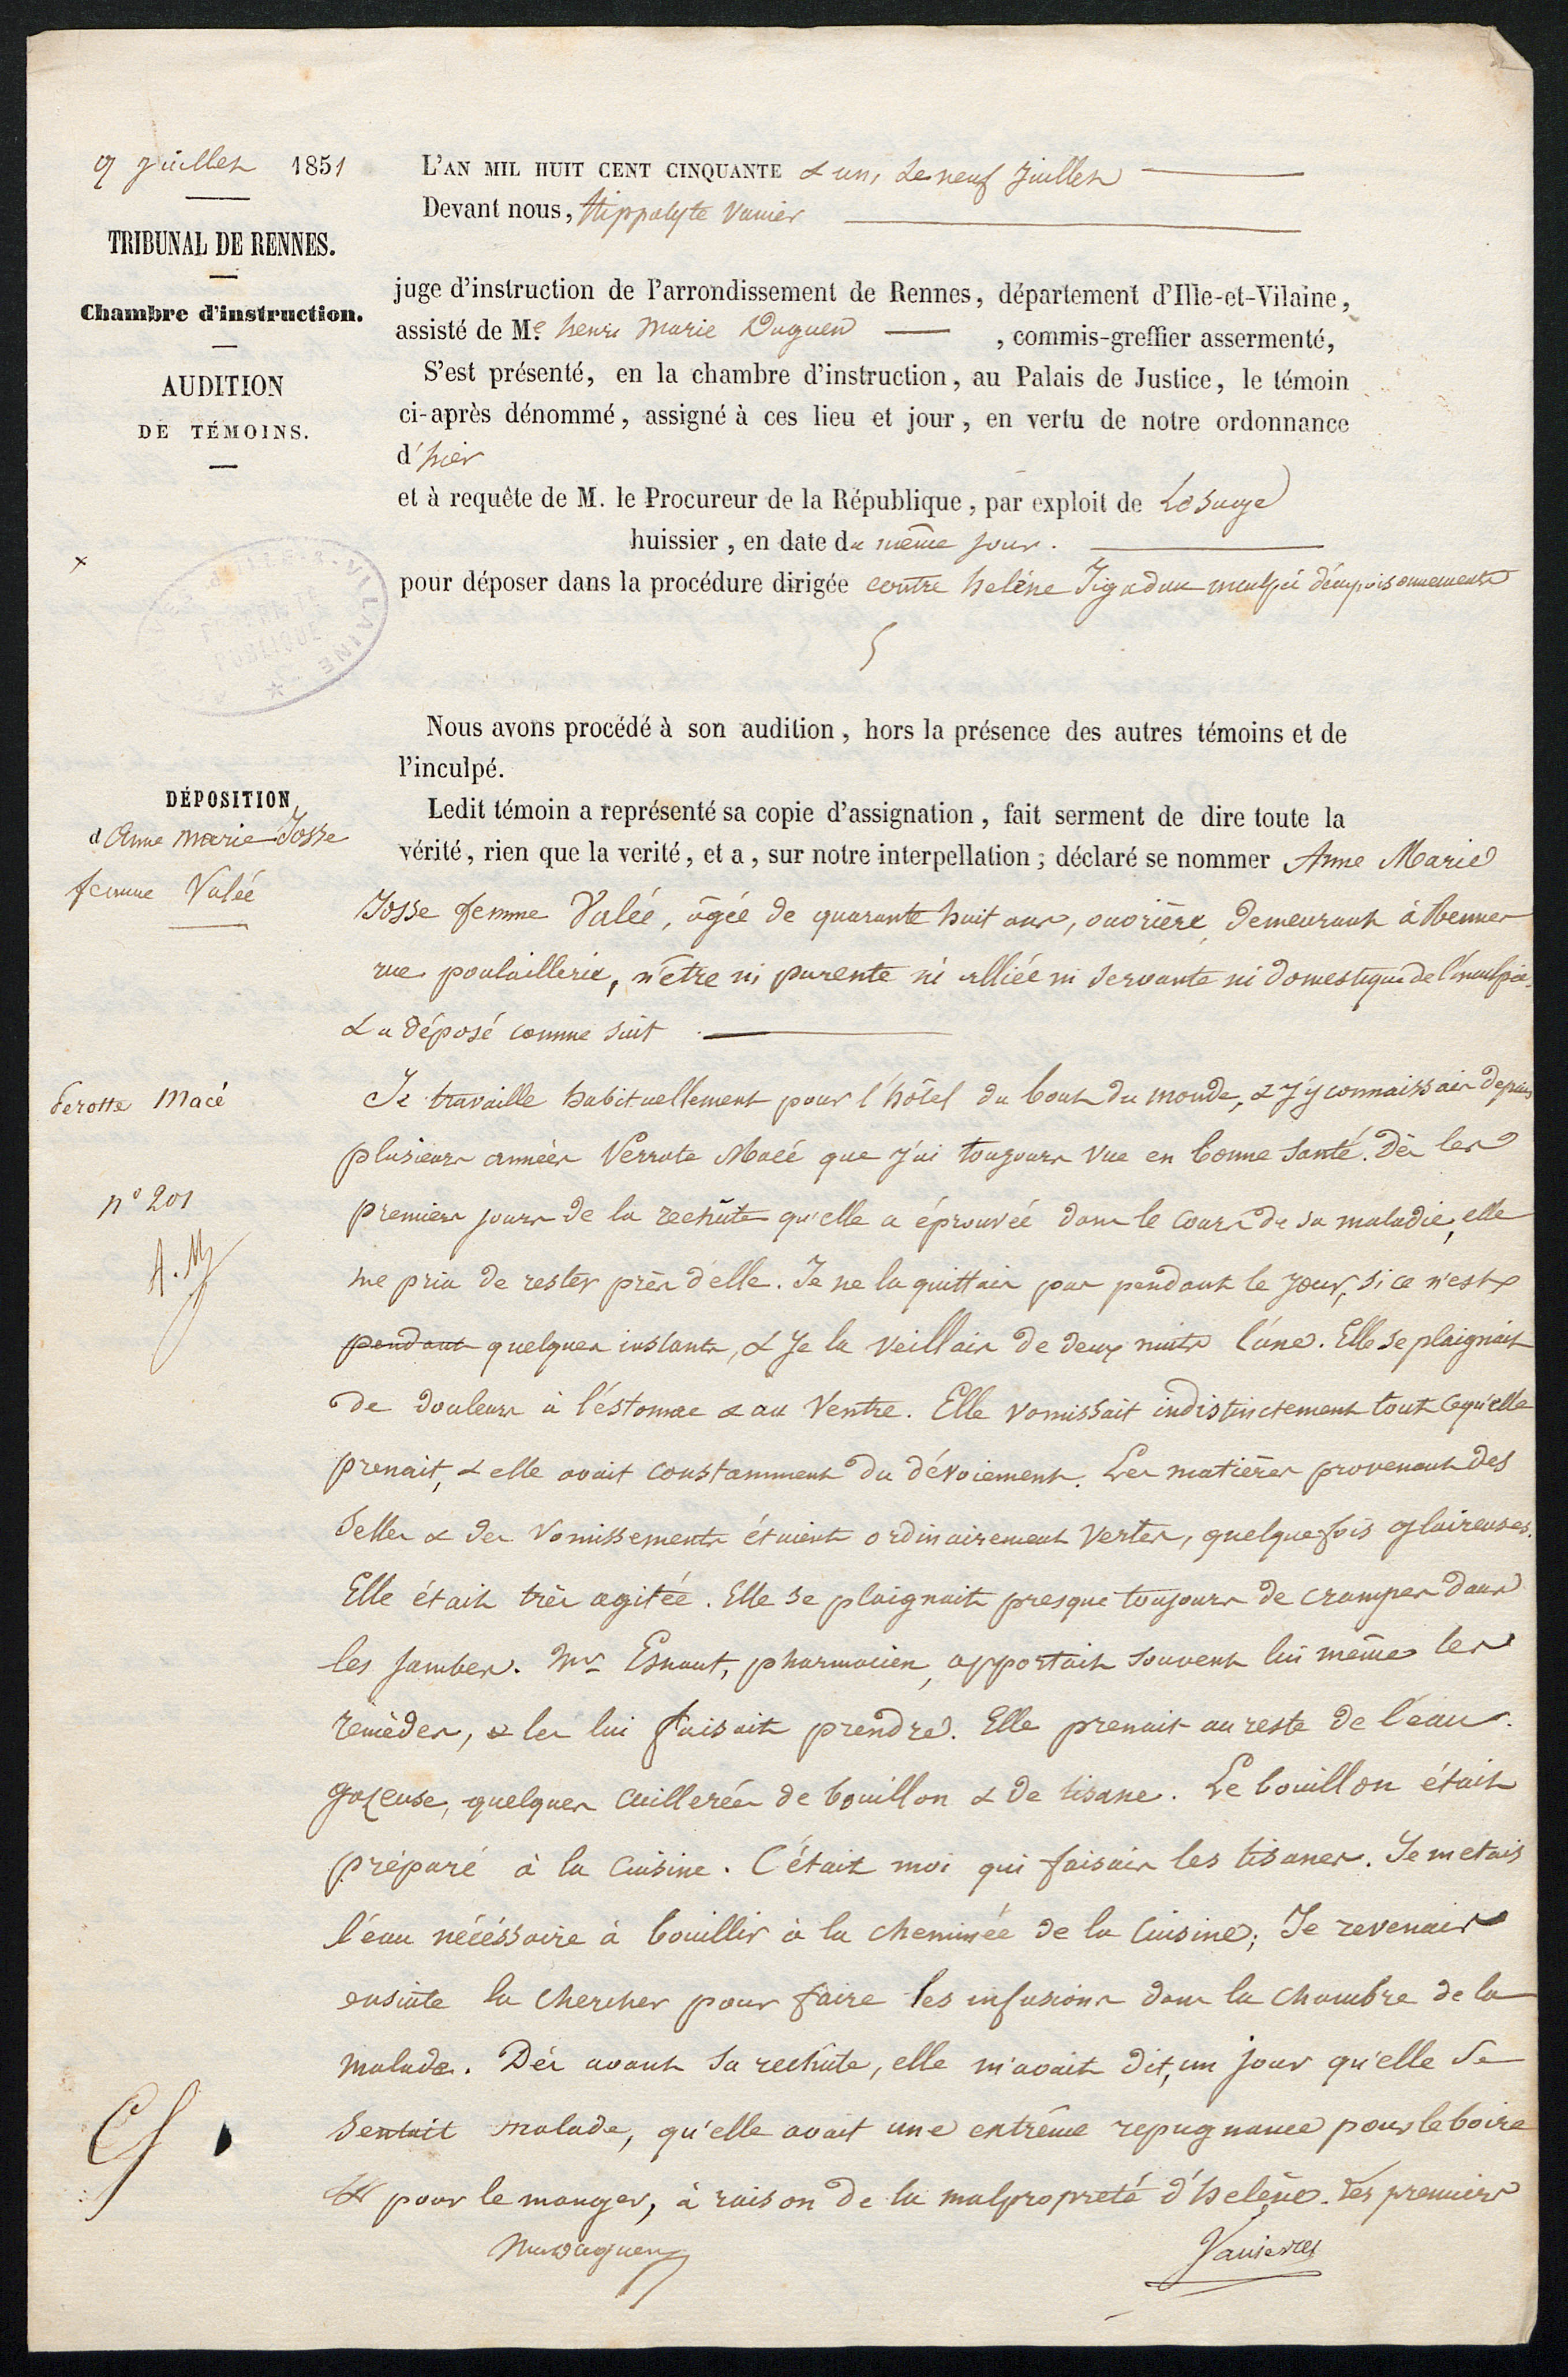 9 juillet 1851
TRIBUNAL DE RENNES.
Chambre d'instruction.
AUDITION
DE TÉMOINS.
L'AN MIL HUIT CENT CINQUANTE & un, Le neuf juillet
Devant nous, Hippolyte Vannier
juge d'instruction de l'arrondissement de Rennes, département d'Ille-et-Vilaine,
assisté de Me. henri Marie Duguen , commis-greffier assermenté,
S'est présenté, en la chambre d'instruction, au Palais de Justice, le témoin
ci-après dénommé, assigné à ces lieu et jour, en vertu de notre ordonnance
d'hier
et à requête de M. le Procureur de la République, par exploit de Lesauge
huissier, en date du même jour.
pour déposer dans la procédure dirigée contre heléne Jégadeau inculpée d'empoisonnements
Nous avons procédé à son audition, hors la présence des autres témoins et de
l'inculpé.
DÉPOSITION,
d'Anne Marie Josse
femme Valée
Ledit témoin a représenté sa copie d'assignation, fait serment de dire toute la
vérité, rien que la verité, et a, sur notre interpellation; déclaré se nommer Anne Marie
Josse femme Valée, âgée de quarante huit ans, ouvrière, demeurant à Rennes
rue poulaillerie, n'être ni parente ni alliée ni servante ni domestique de l'inculpée,
& a déposé comme suit
Perotte Macé
n° 201
A. M
Je travaille habituellement pour l'hôtel du bout du monde, & j'y connaissais depuis
plusieurs années Perrote Macé que j'ai toujours vue en bonne santé. Dès les
premiers jours de la rechûte qu'elle a éprouvée dans le cours de sa maladie, elle
me pria de rester près d'elle. Je ne la quittais pas pendant le jour, si ce n'est
pendant quelques instants, & je la veillais de deux nuits l'une. Elle se plaignait
de douleurs à l'éstomac & au Ventre. Elle vomissait indistinctement tout ce qu'elle
prenait, & elle avait constamment du dévoiement. Les matières provenant des
Selles & des Vomissements étaient ordinairement vertes, quelquefois glaireuses.
Elle était très agitée. Elle se plaignait presque toujours de crampes dans
les jambes. Mr Esnaut, pharmacien, apportait souvent lui même les
remèdes, & les lui faisait prendre. Elle prenait au reste de l'eau
gazeuse, quelques cuillerées de bouillon & de tisane. Le bouillon était
préparé à la cuisine. C'était moi qui faisais les tisanes. Je metais
l'eau nécéssaire à bouillir à la cheminée de la cuisine; Je revenais
ensuite la chercher pour faire les infusions dans la chambre de la
malade. Dès avant sa rechûte, elle m'avait dit, un jour qu'elle se
sentait malade, qu'elle avait une extrême repugnance pour le boire
& pour le manger, à raison de la malpropreté d'heléne. Les premiers
Duguen
Vannier